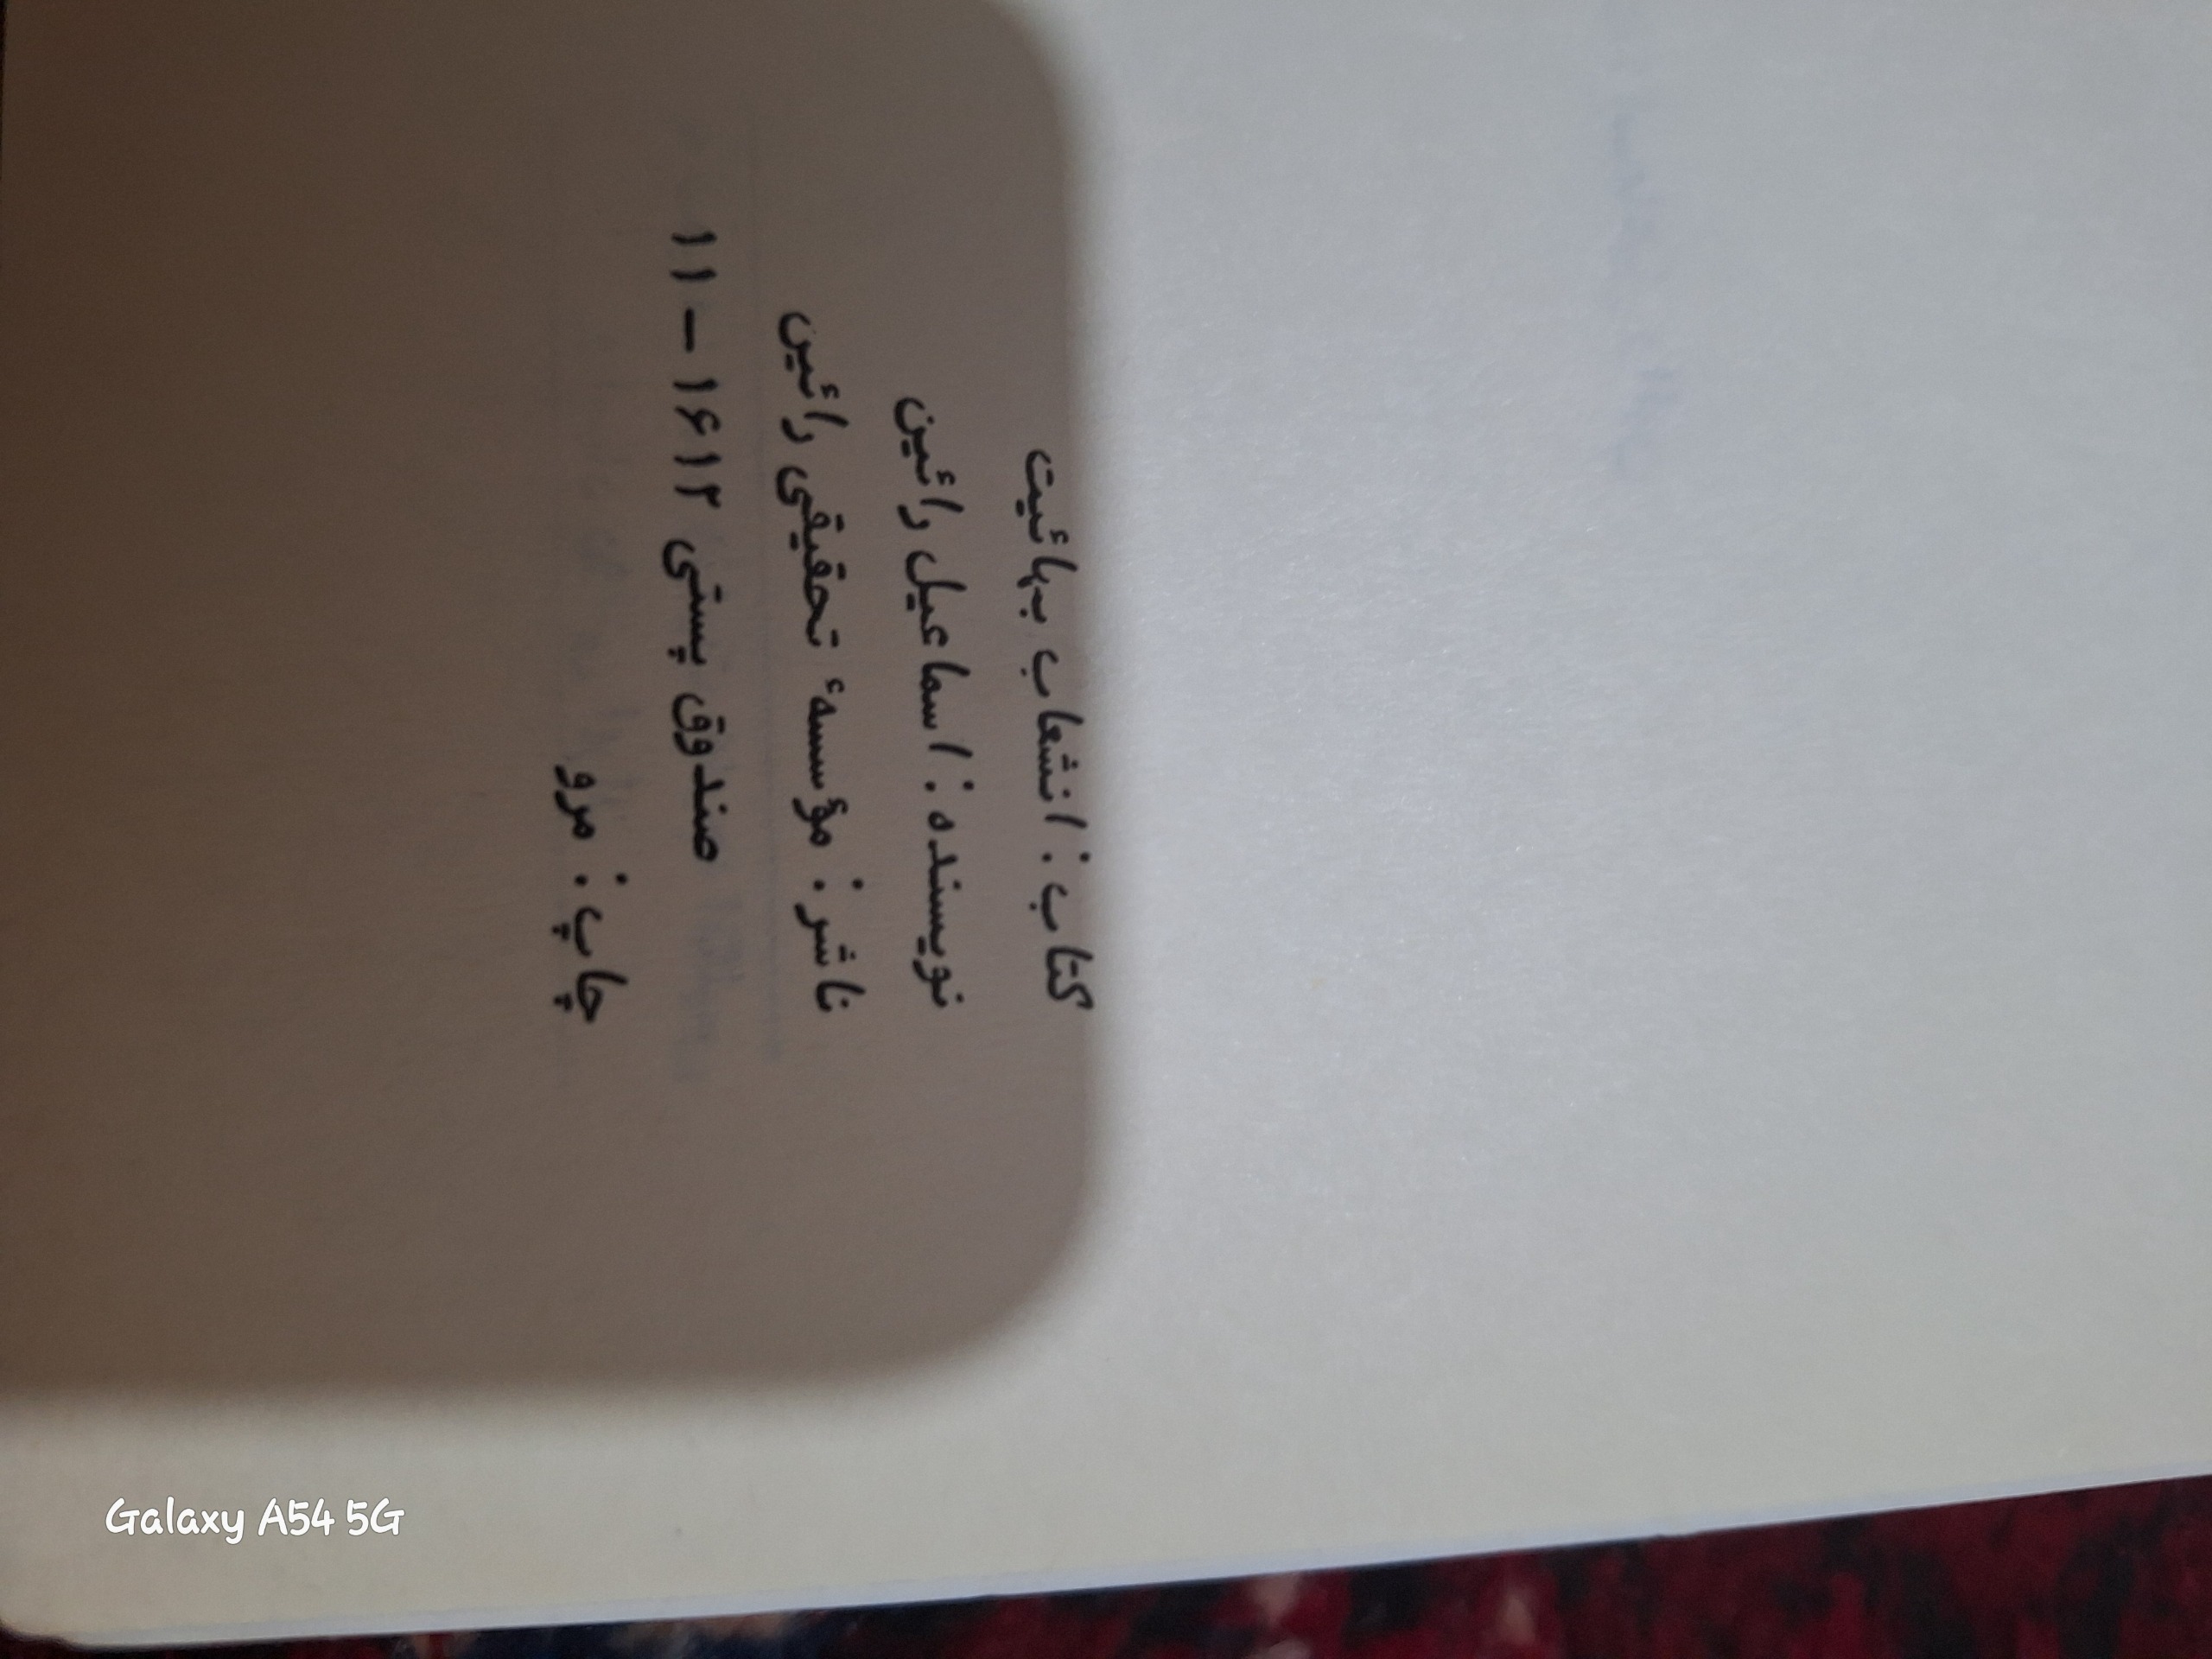 کتاب: انشعاب بهائیت
نویسنده: اسماعیل رائین
ناشر: مؤسسهٔ تحقیقی رائین
صندوق پستی ۱۶۱۲ - ۱۱
چاپ: مرو
Galaxy A54 5G